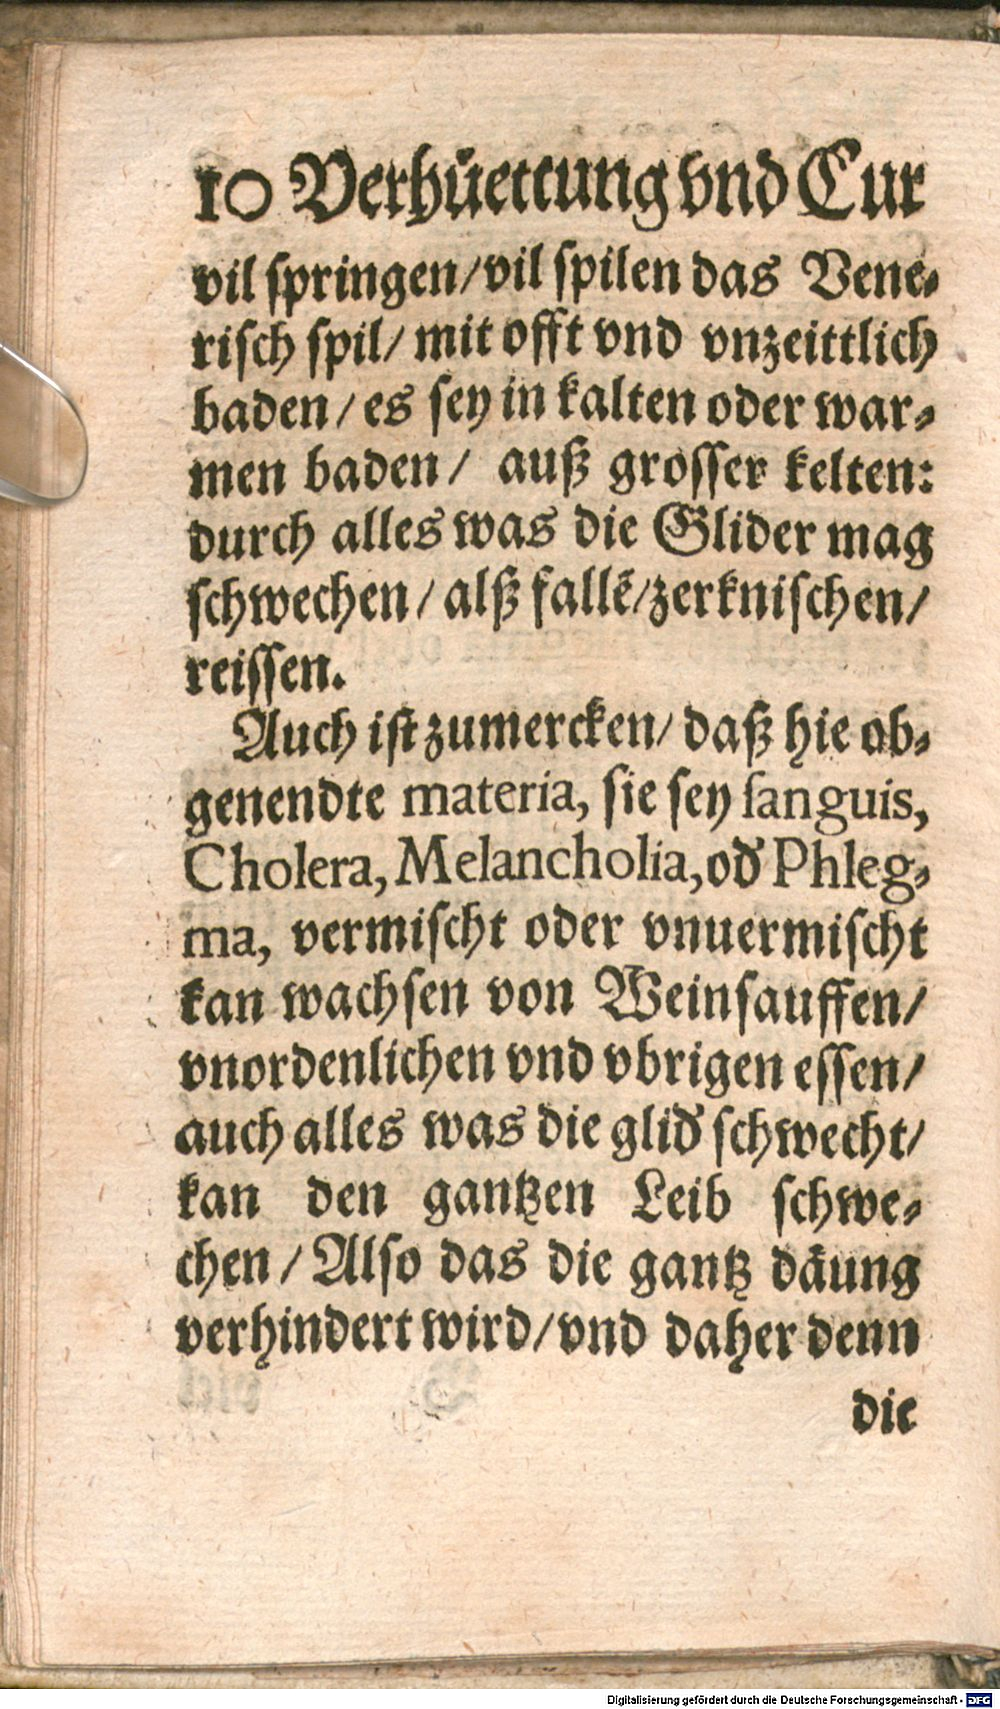 10 Verhüettung vnd Cur
vil springen/vil spilen das Vene⸗
risch spil/ mit offt vnd vnzeittlich
baden/ es sey in kalten oder war⸗
men baden/ auß grosser kelten:
durch alles was die Glider mag
schwechen/ alß fallẽ/zerknischen/
reissen.
Auch ist zumercken/ daß hie ob⸗
genendte materia, sie sey sanguis,
Cholera, Melancholia, od̃ Phleg⸗
ma, vermischt oder vnuermischt
kan wachsen von Weinsauffen/
vnordenlichen vnd vbrigen essen/
auch alles was die glid̃ schwecht/
kan den gantzen Leib schwe⸗
chen/ Also das die gantz däung
verhindert wird/vnd daher denn
die
Digitalisierung gefördert durch die Deutsche Forschungsgemeinschaft - DFG